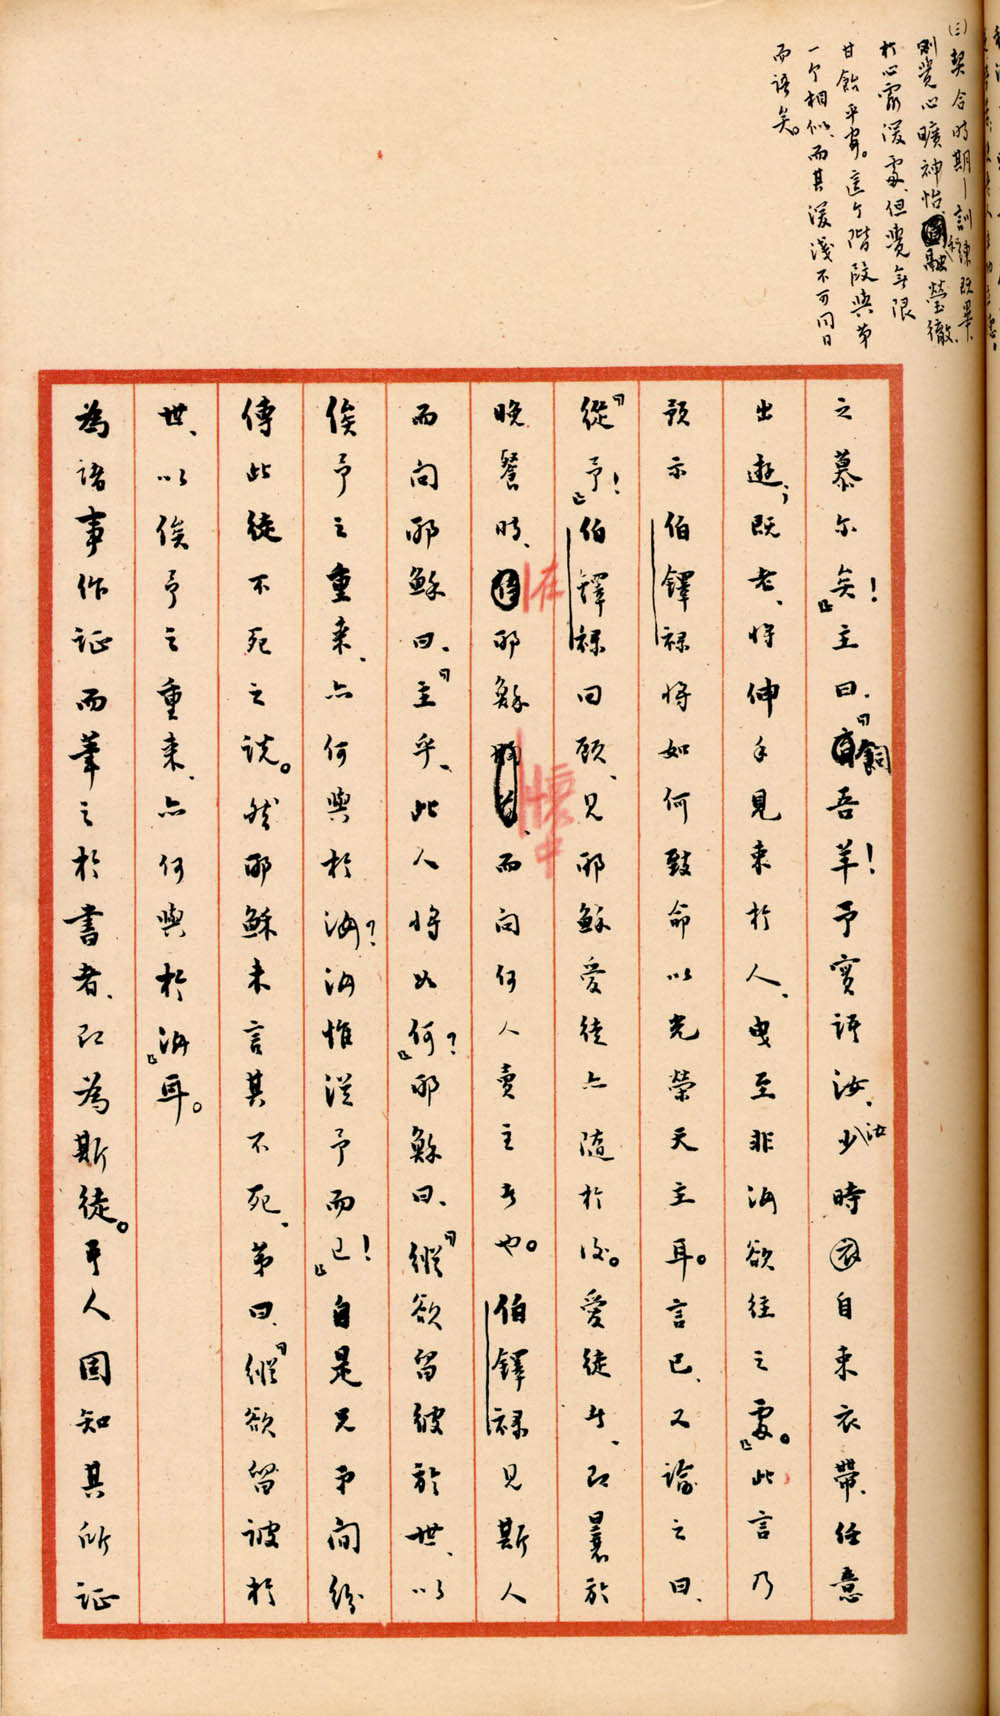 (三)契合時期—訓練既畢、
則覺心曠神怡、融瑩徹、
於心靈深處、但覺無限
甘飴平安。這个階段與第
一个相似、而其深淺不可同日
而語矣。
之慕尔矣！』主曰、『飼吾羊！予實語汝、汝少時自束衣帶、任意
出遊；既老、將伸手見束於人、曳至非汝欲往之處。』此言乃
預示伯鐸祿將如何致命以光榮天主耳。言已、又諭之曰、
『從予！』伯鐸祿回顧、見耶穌愛徒亦隨於後。愛徒者、即曩於
晚餐時、在耶穌懷中、而問何人賣主者也。伯鐸祿見斯人
而問耶穌曰、『主乎、此人將如何？』耶穌曰、『縱欲留彼於世、以
俟予之重來、亦何與於汝？汝惟從予而已！』自是兄弟間紛
傳此徒不死之說。然耶穌未言其不死、第曰、『縱欲留彼於
世、以俟予之重來、亦何與於汝耳。』
為諸事作証而筆之於書者、即為斯徒。吾人固知其所証